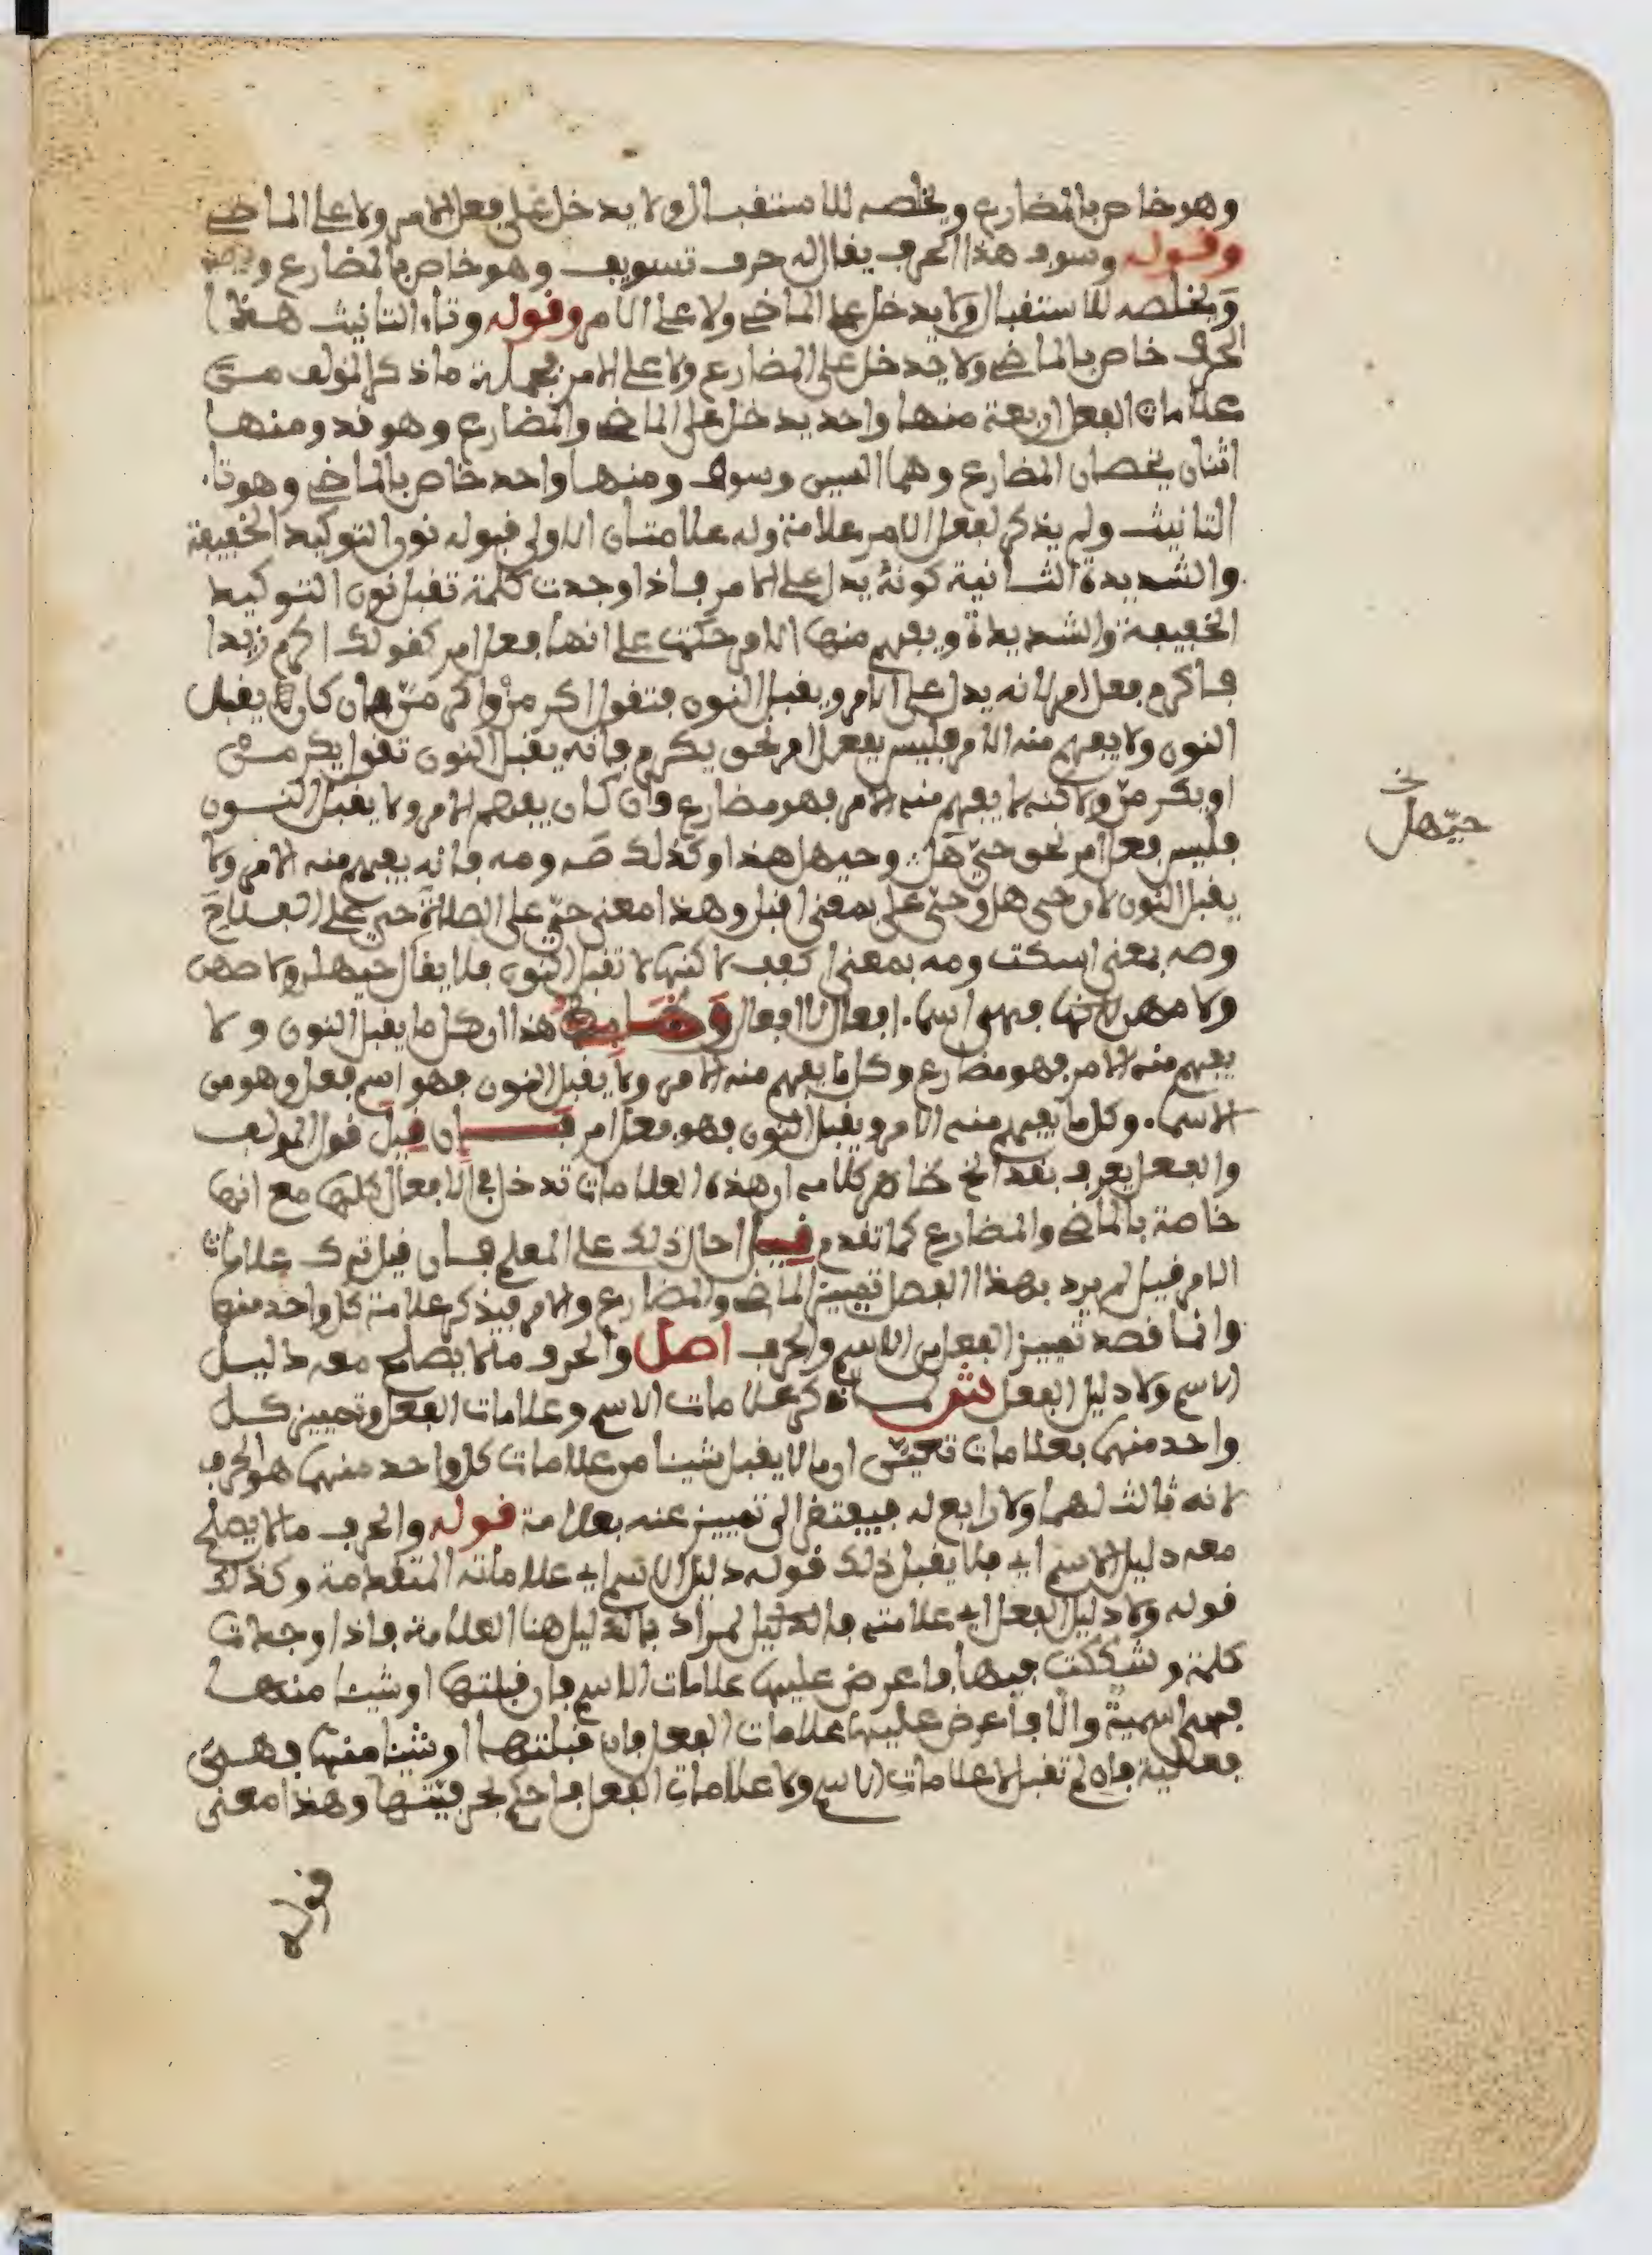 وهو خاص بالمضارع ويخلصه للاستقبال ولا يدخل على فعل الامر ولا على الماضي
وقوله وسوف هذا الحرف يقال له حرف تسويف وهو خاص بالمضارع
وَيخلصه للاستقبال ولا يدخل على الماضي ولا على الامر وقوله وتاء التانيث هذا
الحرف خاص بالماضي ولا يدخل على المضارع ولا على الامر فجملة ما ذكر المؤلف من
علامات الفعل اربعة منها واحد يدخل على الماضي والمضارع وهو قد ومنها
اثنان يخصان المضارع وهما السين وسوف ومنها واحد خاص بالماضي وهو تاء
التانيث ولم يذكر لفعل الامر علامة وله علامتان الاولى قبوله نون التوكيد الخفيفة
والشديدة الثانية كونه يدل على الامر فاذا وجدت كلمة تقبل نون التوكيد
الخفيفة والشديدة ويفهم منها الامر حكمت على انها فعل امر كقولك اكرم زيدا
فاكرم فعل امر لانه يدل على الامر ويقبل النون فتقول اكرمنْ واكرمنّ فان كان يقبل
النون ولا يفهم منه الامر فليس بفعل امر نحو يكرم فانه يقبل النون تقول يكرمنْ
او يكرمنّ ولاكنه لا يفهم منه الامر فهو مضارع وان كان يفهم الامر ولا يقبل النون
فليس فعل امر نحو حيّ هَل وحيهل هذا وكذلك صَه ومه فانه يفهم منه الامر ولا
يقبل النون لان حي هل وحيّ على بمعنى اقبل وهذا معنى حيّ على الصلاة حيّ على الفلاح
وصه بمعنى اسكت ومه بمعنى اكفف لاكنها لا تقبل النون فلا يقال حيهلن ولا صهن
ولا مهن لانها فهي اسماء افعال لا افعال هذا ان كل ما يقبل النون ولا
يفهم منه الامر فهو مضارع وكل ما يفهم منه الامر ولا يقبل النون فهو اسم فعل وهو من
الاسماء وكل ما يفهم منه الامر ويقبل النون فهو فعل امر فَإن قيلَ قول المؤلف
والفعل يعرف بقد الخ ظاهر كلامه ان هذه العلامات تدخل في الافعال كلها مع انها
خاصة بالماضي والمضارع كما تقدم قيل احال ذلك على المعلم فان قيل ترك علامات
الامر قيل لم يرد بهذا الفصل تمييز الماضي والمضارع والامر فيذكر علامة كل واحد منها
وانما قصد تمييز الفعل من الاسم والحرف اصل والحرف ما لا يصلح معه دليل
الاسم ولا دليل الفعل ش لما ذكر علامات الاسم وعلامات الفعل وتمييز كل
واحد منهما بعلامات تعيّن ان ما لا يقبل شيئا من علامات كل واحد منهما هو الحرف
لانه ثالث لهما ولا رابع له فيفتقر الى تمييز عنه بعلامة قوله والحرف ما لا يصلح
معه دليل الاسم اي فلا يقبل ذلك قوله دليل الاسم اي علاماته المتقدمة وكذلك
قوله ولا دليل الفعل اي علامته فالدليل لمراد بالدليل هنا العلامة فاذا وجدت
كلمة وشككت فيها فاعرض عليها علامات الاسم فان قبلتها او شيئا منها
فهي اسمية والا فاعرض عليها علامات الفعل فان قبلتها او شيئا منها فهي
فعلية فان لم تقبل لا علامات الاسم ولا علامات الفعل فاحكم بحرفيّتها وهذا معنى
حيّهل